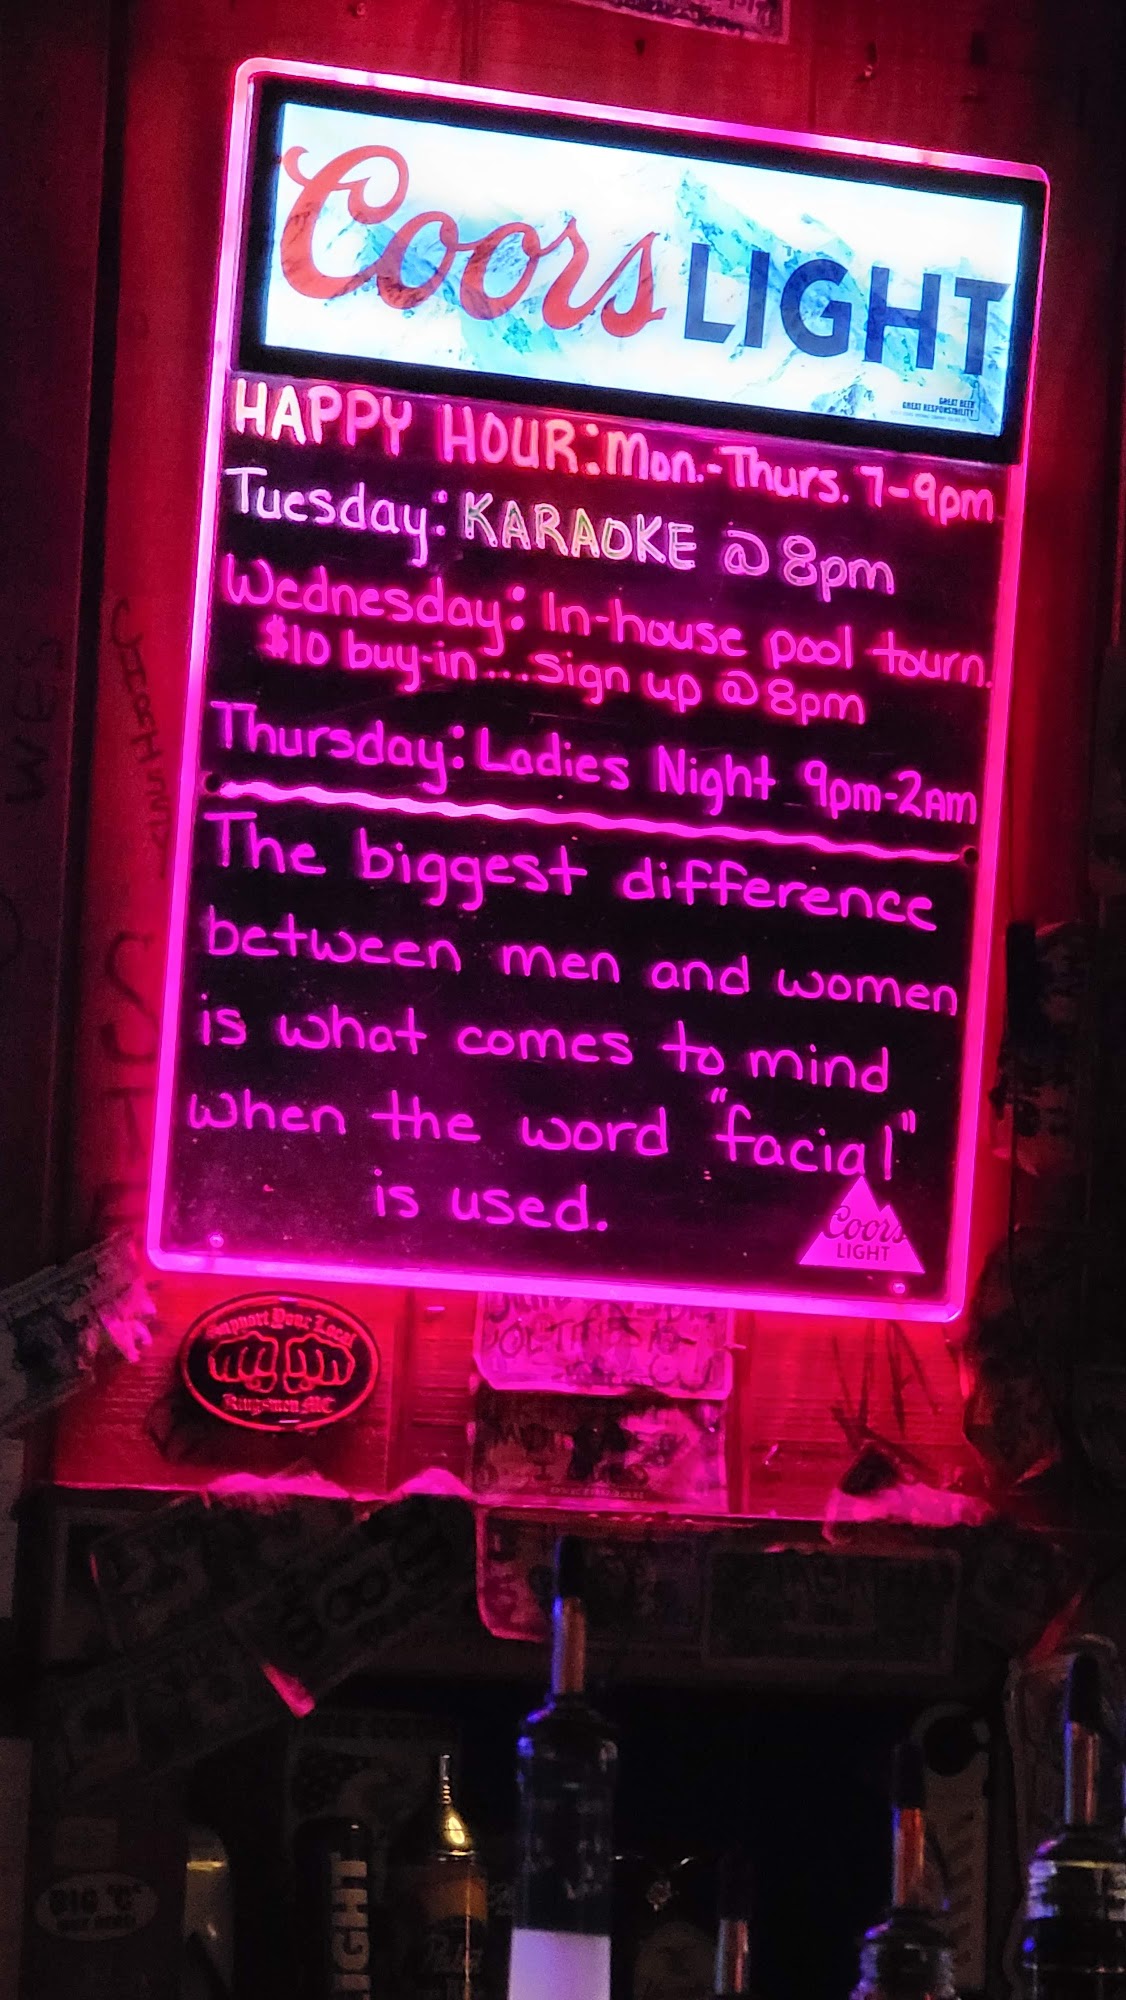 Coors LIGHT
GREAT BEER
GREAT RESPONSIBILITY
HAPPY HOUR: Mon.-Thurs. 7-9pm
Tuesday: KARAOKE @ 8pm
Wednesday: In-house pool tourn.
$10 buy-in....sign up @ 8pm
Thursday: Ladies Night 9pm-2AM
The biggest difference
between men and women
is what comes to mind
when the word "facial"
is used.
Coors
LIGHT
Support Your Local
Kingsmen MC
VA
BIG "C"